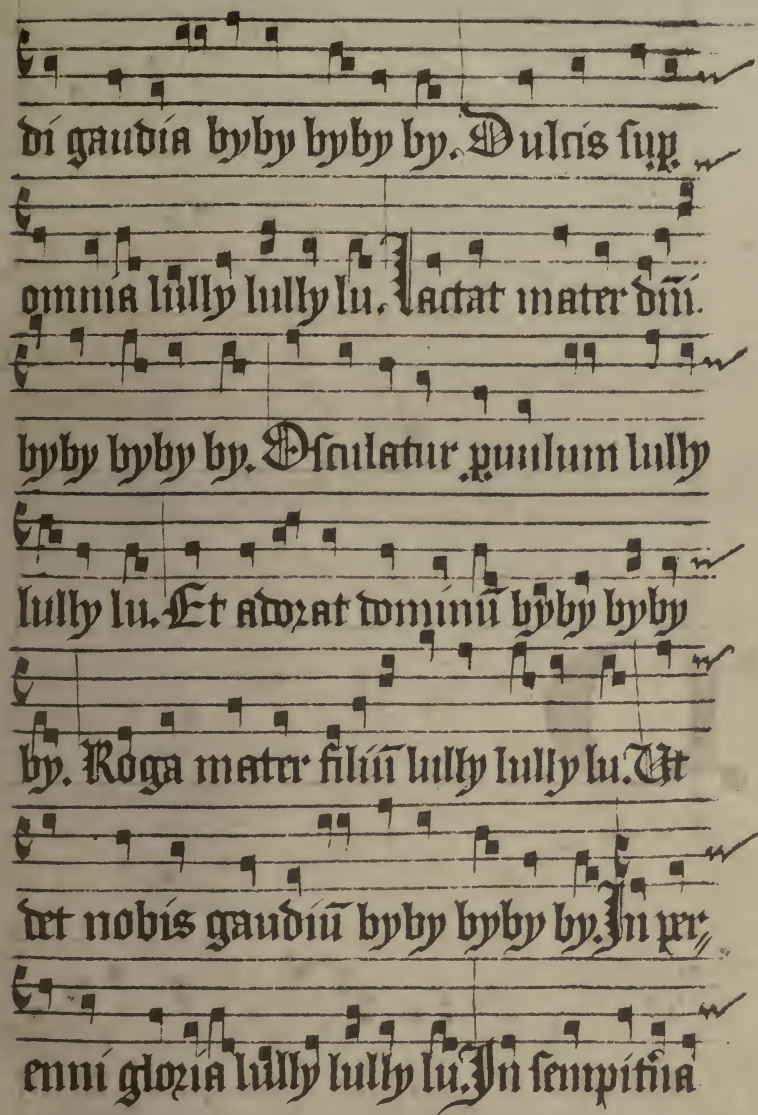 di gaudia byby byby by. Dulcis sup̱
omnia lully lully lu. Lactat mater dm̄i.
byby byby by. Osculatur ꝑuulum lully
lully lu. Et adorat dominū byby byby
by. Roga mater filiū lully lully lu. Ut
det nobis gaudiū byby byby by. In per⸗
enni gloria lully lully lu. In sempit̄na